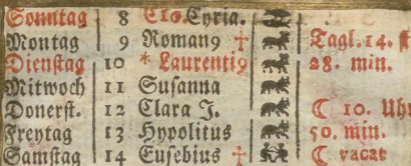 Sonntag 8 Cyria.
Montag 9 Roman9 † Tagl. 14. st
Dienstag 10 * Laurenti9 28. min.
Mitwoch 11 Susanna
Donerst. 12 Clara J. ☾ 10. Uhr
Freytag 13 Hypolitus 50. min.
Samstag 14 Eusebius † ☾ vacat